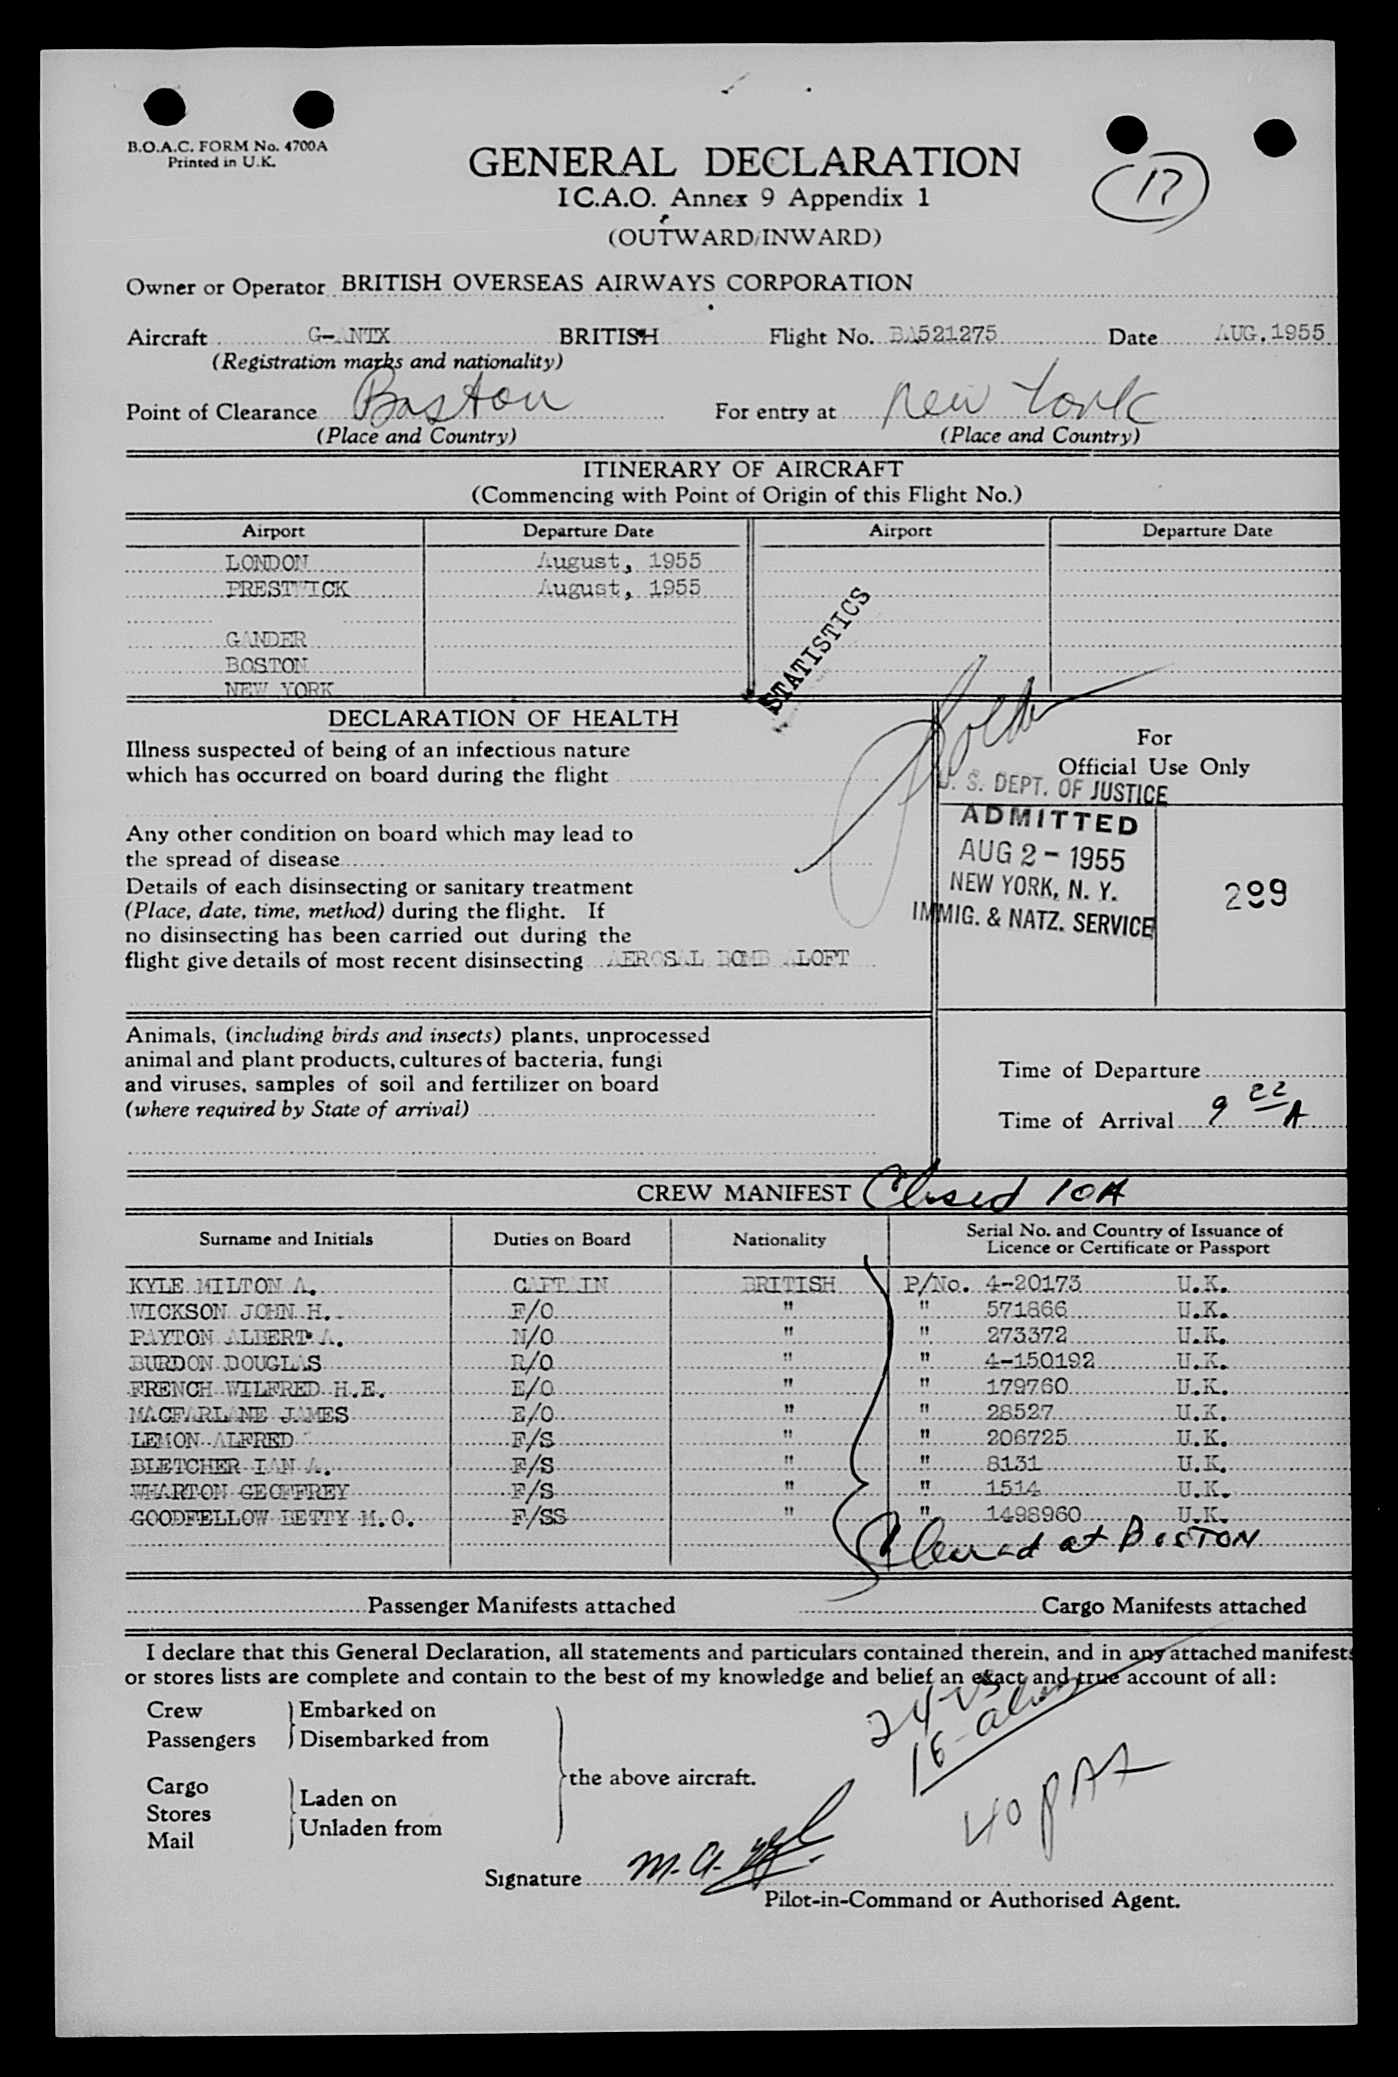 B.O.A.C. FORM No. 4700A
Printed in U.K.
GENERAL DECLARATION
I C.A.O. Annex 9 Appendix 1
(OUTWARD/INWARD)
17
Owner or Operator BRITISH OVERSEAS AIRWAYS CORPORATION
Aircraft G-ANTX BRITISH Flight No. BA521275 Date AUG, 1955
(Registration marks and nationality)
Point of Clearance Boston For entry at New York
(Place and Country) (Place and Country)
ITINERARY OF AIRCRAFT
(Commencing with Point of Origin of this Flight No.)
Airport Departure Date Airport Departure Date
LONDON August, 1955
PRESTWICK August, 1955
GANDER
BOSTON
NEW YORK
STATISTICS
DECLARATION OF HEALTH
Illness suspected of being of an infectious nature
which has occurred on board during the flight
Any other condition on board which may lead to
the spread of disease
Details of each disinsecting or sanitary treatment
(Place, date, time, method) during the flight. If
no disinsecting has been carried out during the
flight give details of most recent disinsecting AEROSAL BOMB ALOFT
For
Official Use Only
U. S. DEPT. OF JUSTICE
ADMITTED
AUG 2 - 1955
NEW YORK, N. Y.
IMMIG. & NATZ. SERVICE
299
Animals, (including birds and insects) plants, unprocessed
animal and plant products, cultures of bacteria, fungi
and viruses, samples of soil and fertilizer on board
(where required by State of arrival)
Time of Departure
Time of Arrival 9 22 A
CREW MANIFEST Closed 10A
Surname and Initials Duties on Board Nationality Serial No. and Country of Issuance of
Licence or Certificate or Passport
KYLE MILTON A. CAPTAIN BRITISH P/No. 4-20173 U.K.
WICKSON JOHN H. F/O " " 571866 U.K.
PAYTON ALBERT A. N/O " " 273372 U.K.
BURDON DOUGLAS R/O " " 4-150192 U.K.
FRENCH WILFRED H.E. E/O " " 179760 U.K.
MACFARLANE JAMES E/O " " 28527 U.K.
LEMON ALFRED F/S " " 206725 U.K.
BLETCHER IAN A. F/S " " 8131 U.K.
WHARTON GEOFFREY F/S " " 1514 U.K.
GOODFELLOW BETTY M.O. F/SS " " 1498960 U.K.
Cleared at BOSTON
Passenger Manifests attached Cargo Manifests attached
I declare that this General Declaration, all statements and particulars contained therein, and in any attached manifests
or stores lists are complete and contain to the best of my knowledge and belief an exact and true account of all:
Crew Embarked on
Passengers Disembarked from
the above aircraft.
Cargo Laden on
Stores
Mail Unladen from
24-US
16-alien
40 pax
Signature M. A. Kyle
Pilot-in-Command or Authorised Agent.